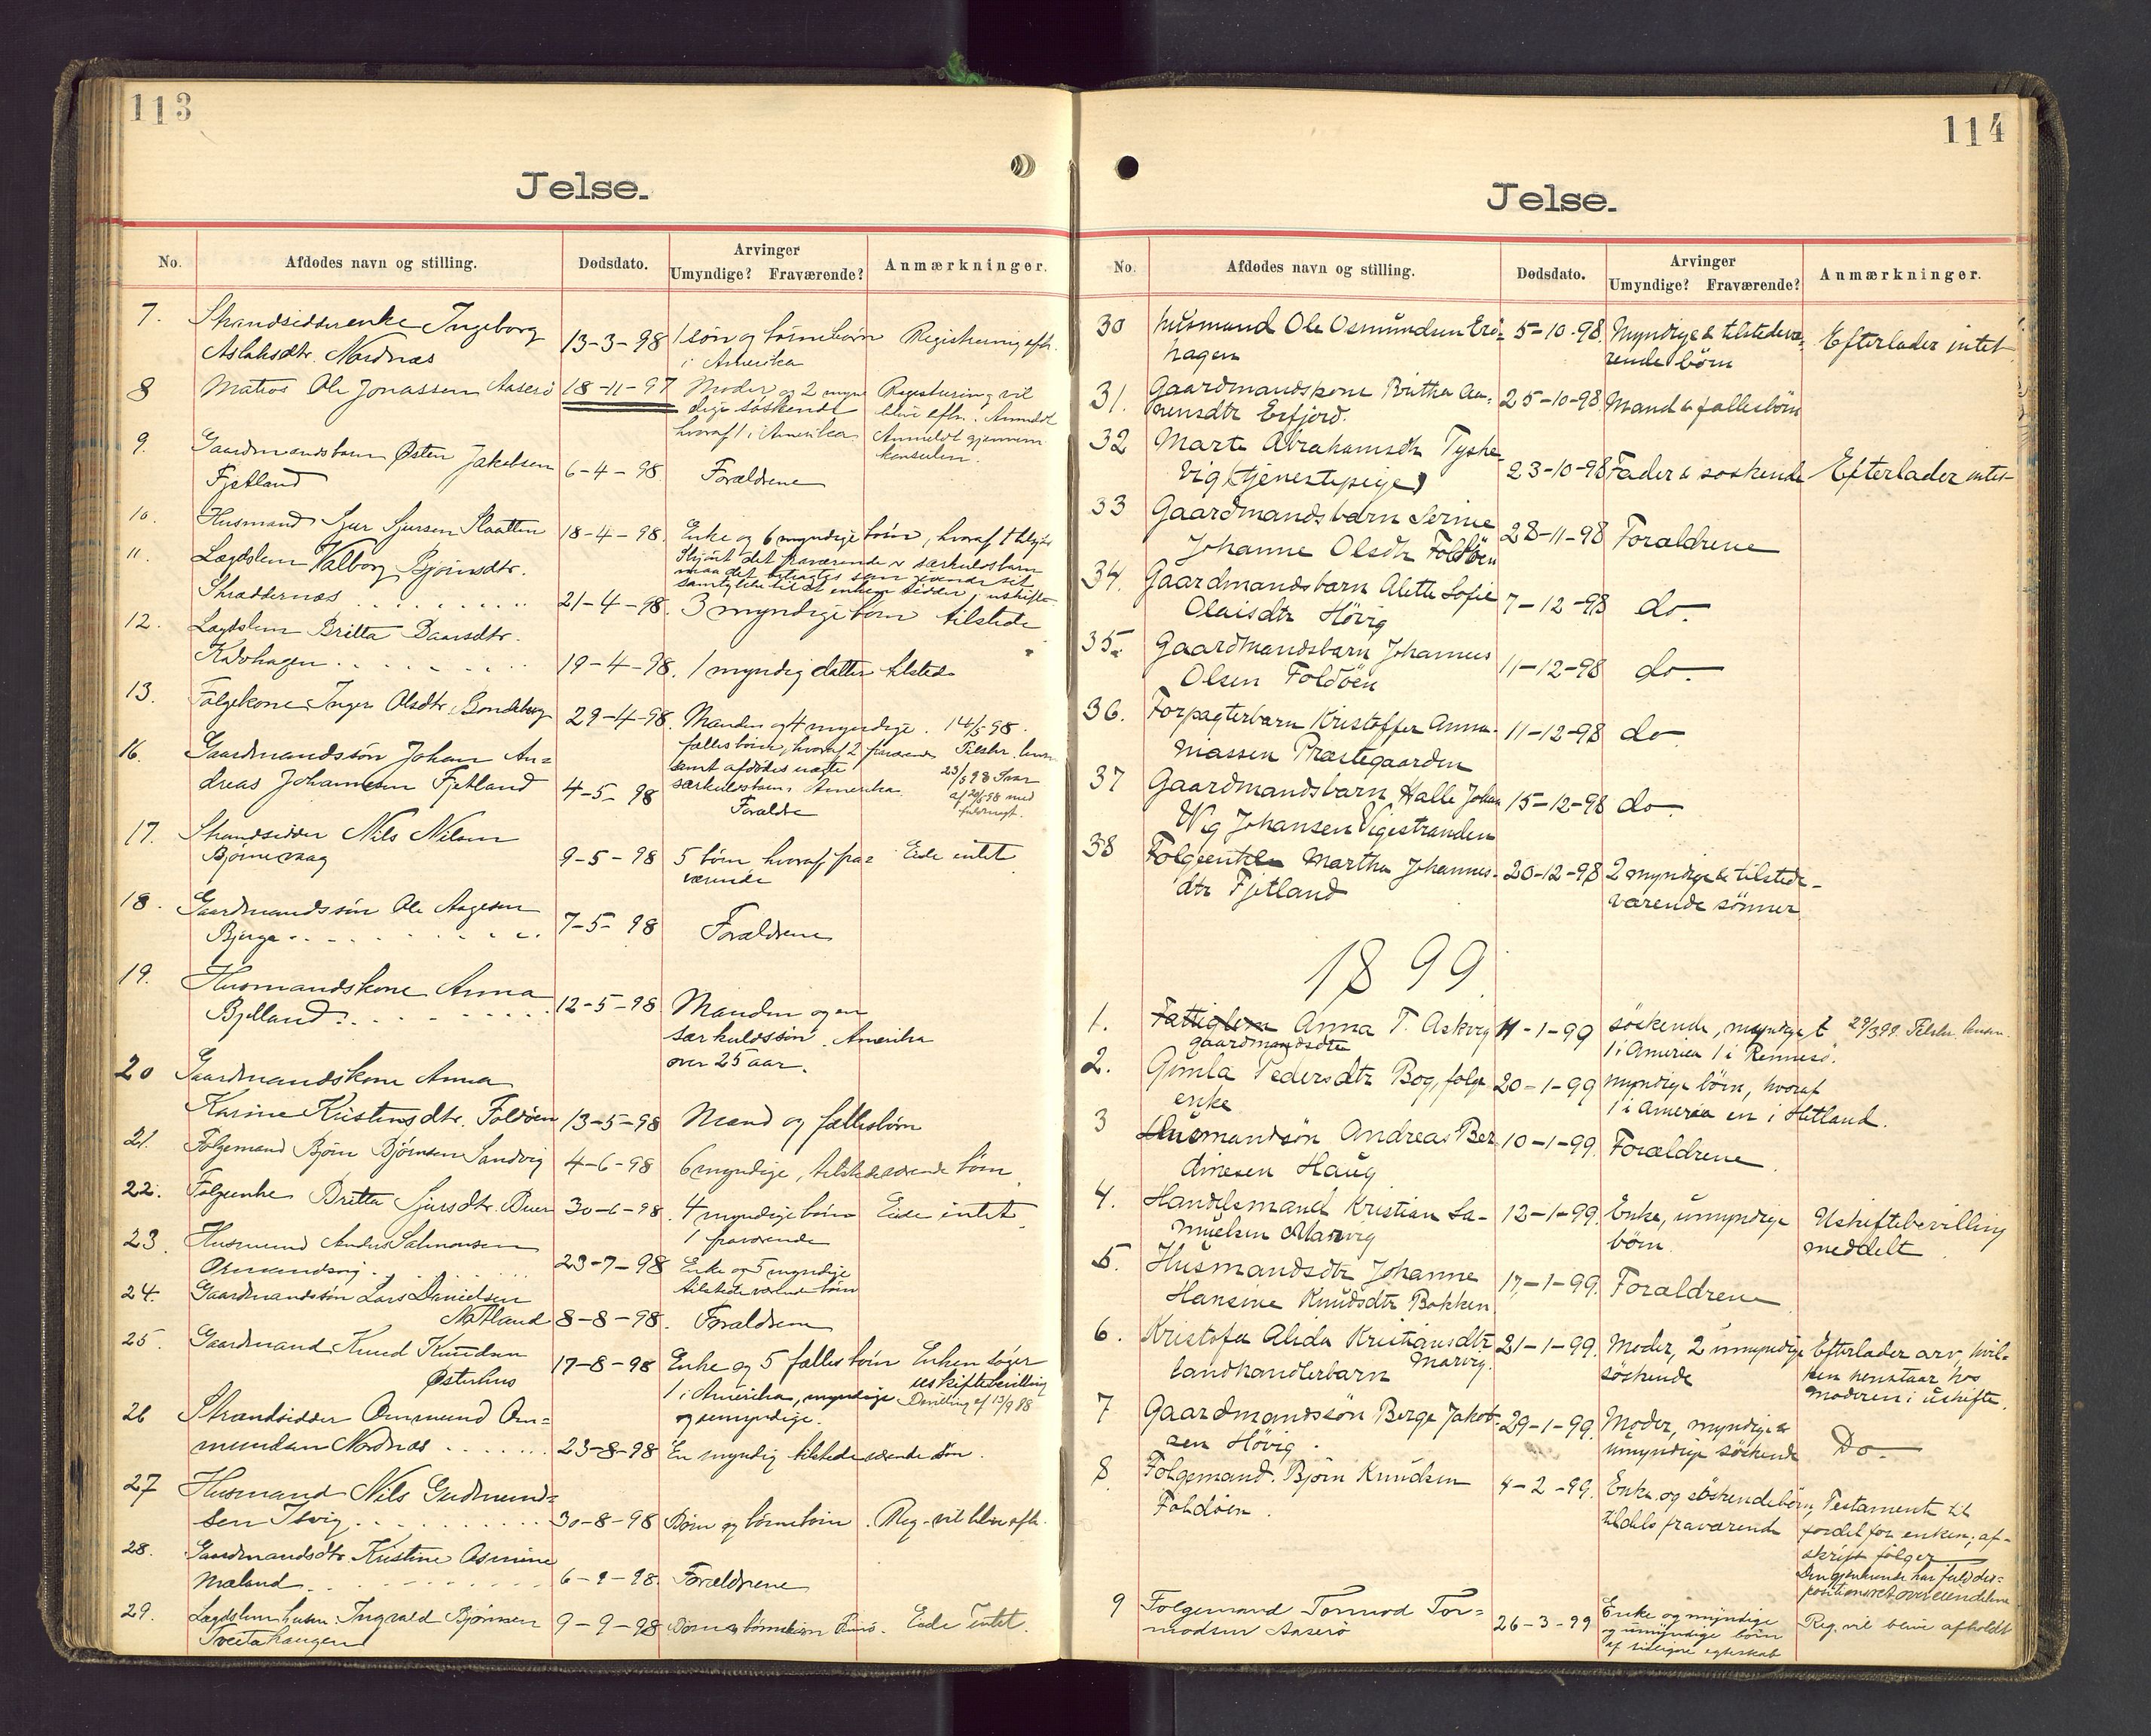 113
Jelse.
No.
Afdødes navn og stilling.
Dødsdato.
Arvinger
Umyndige? Fraværende?
Anmærkninger.
7. Strandsidderenke Ingeborg
Aslaksdtr. Nordnæs 13-3-98 1 søn og børnebørn Registrering afh.
i Amerika
8 Matros Ole Jonassen Aaserø 18-11-97 Moder og 2 myn
dige søskende
hvoraf 1 i Amerika
Registrering vil
blive afh. Anmeldt
Anmeldt gjennem
konsulen.
9. Gaardmandsbarn Østen Jakobsen
Fjetland 6-4-98 Forældrene
10. Husmand Sjur Sjursen Slaatten 18-4-98. Enke og 6 myndige børn, hvoraf 1
Skjønt det fraværende er særkuldsbarn
maa det betragtes som givende sit
samtykke til at enken sidder i uskifte
11. Lægdslem Valborg Bjørnsdtr.
Skraddernæs 21-4-98. 3 myndige børn tilstede
12. Lægdslem Britta Baarsdtr.
19-4-98. 1 myndig datter tilstede
13. Følgekone Inger Olsdtr. 29-4-98. Manden og 4 myndige. 14/5 98.
fællesbørn, hvoraf 2 fraværende
samt afdødes uægte
særkuldsbarn i Amerika.
23/5 98 Svar
af 20/5 98 med
fuldmagt.
16. Gaardmandssøn Johan An=
dreas Johannesen Fjetland 4-5-98 Forældre
17. Strandsidder Nils Nilsen
Bjørnevaag 9-5-98 5 børn hvoraf fra= Eide intet
værende
18. Gaardmandssøn Ole Aagesen
Bjerga 7-5-98 Forældrene
19. Husmandskone Anna
Bjelland 12-5-98 Manden og en
særkuldssøn i Amerika
over 25 aar.
20 Gaardmandskone Anna
Karine Kristensdtr. Foldøen 13-5-98 Mand og fællesbørn
21. Følgemand Bjørn Bjørnsen Sandvig 4-6-98 6 myndige, tilstedeværende børn
22. Følgeenke Britta Sjursdtr. 30-6-98. 4 myndige børn Eide intet
1 fraværende
23. Husmand Anders Salmonsen
23-7-98 Enke og 5 myndige
tilstedeværende børn
24. Gaardmandssøn Lars Danielsen
Natland 8-8-98. Forældrene
25. Gaardmand Knud Knudsen
Østerhus 17-8-98 Enke og 5 fællesbørn Enken søger
1 i Amerika, myndige uskiftebevilling
og umyndige. Bevilling af 13/9 98
26 Strandsidder Ommund Om=
mundsen Nordnæs 23-8-98 En myndig tilstedeværende søn.
27 Husmand Nils Gudmund=
sen Tsvig 30-8-98 Børn og børnebørn. Reg. vil blive afh.
28. Gaardmandsdtr. Kristine Asmine
Mæland 6-9-98. Forældrene
29. Lægdslem husm. Ingvald Bjørnsen 9-9-98 Børn og børnebørn Eide Intet.
Tveitahaugen
114
Jelse.
No.
Afdødes navn og stilling.
Dødsdato.
Arvinger
Umyndige? Fraværende?
Anmærkninger.
30 husmand Ole Osmundsen Erø- 5-10-98. Myndige & tilstedevæ- Efterlader intet
hagen rende børn
31. Gaardmandskone Britha Aa-
rensdtr Erfjord. 25-10-98 Mand & fællesbørn
32 Marte Abrahamsdtr Tyshe
vig (tjenestepige) 23-10-98 Fader & søskende Efterlader intet
33 Gaardmandsbarn Serine
Johanne Olsdtr Foldöen 28-11-98 Forældrene
34. Gaardmandsbarn Alette Sofie
Olaisdtr Hövig 7-12-98 do.
35. Gaardmandsbarn Johannes
Olsen Foldöen 11-12-98 do.
36. Forpagterbarn Kristoffer Anma-
massen Præstegaarden 11-12-98 do
37 Gaardmandsbarn Halle Johan
Wig Johansen Vigestranden 15-12-98 do.
38 Følgeenke Martha Johannes- 20-12-98 2 myndige & tilstede-
dtr Fjetland værende sönner
1899
1. Fattiglem Anna T. Askvig 11-1-99 söskende, myndige 29/3 99.
gaardmandsdtr 1 i America 1 i Rennesö.
2. Gimla Pedersdtr Bog, følge 20-1-99 myndige börn, hvoraf
enke 1 i America en i Hetland.
3 Husmandsøn Andreas Ber 10-1-99. Forældrene
dinesen Haug
4. Handelsmand Kristian Sa- 12-1-99. Enke, umyndige Uskiftebevilling
muelsen Marvig börn meddelt
5. Husmandsdtr Johanne
Hansine Knudsdtr Bakken 17-1-99. Forældrene
6. Kristofa Alida Kristiansdtr 21-1-99. Moder, 2 umyndige Efterlader arv, hvil-
Marvig. söskende ken henstaar hos
landhandlerbarn moderen i uskifte.
7 Gaardmandssön Berge Jakob- 29-1-99. Moder, myndige &
sen Hövig. umyndige söskende Do
8. Følgemand Björn Knudsen 4-2-99. Enke og söskendebörn, Testament til
Foldöen. tildels fraværende fordel for enken; af-
skrift følger
Den gjenlevende har fuld dis-
positionsret over eiendelene
9 Følgemand Tormod Tor= 26-3-99 Enke og myndige Reg. vil blive afholdt
modsen Aaserø og umyndige børn
af tidligere egteskab